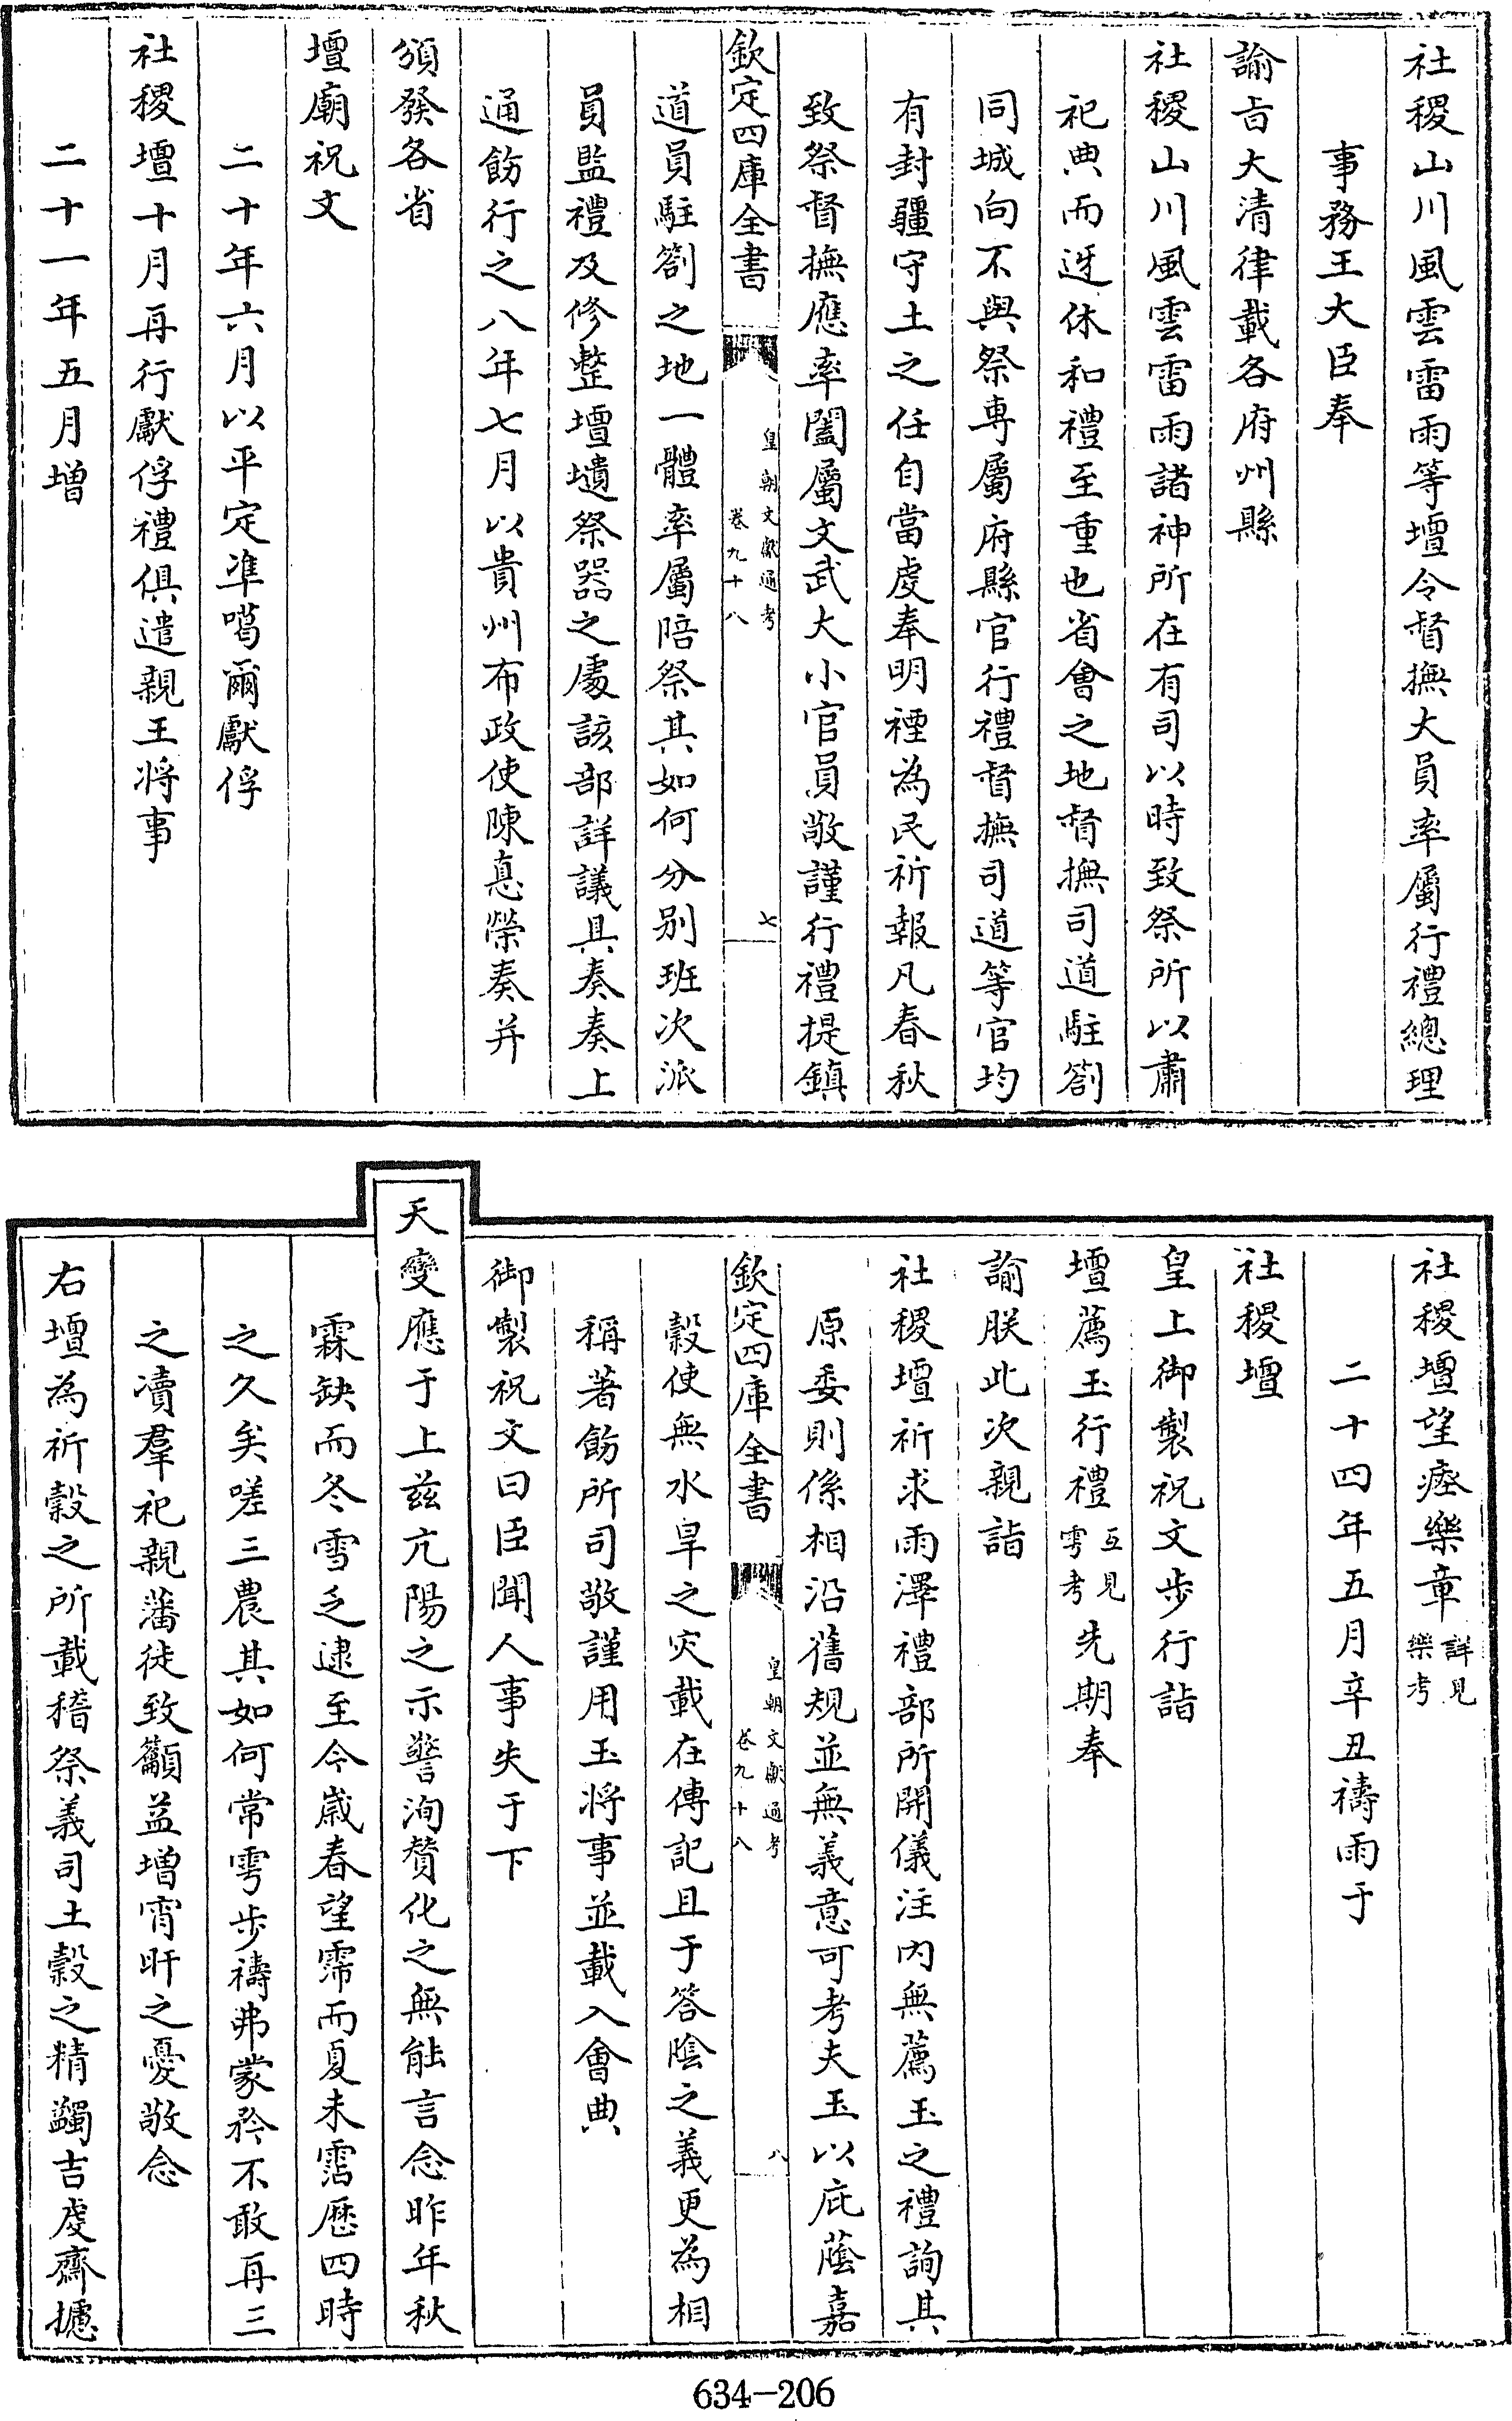 社稷山川風雲雷雨等壇令督撫大員率屬行禮總理
事務王大臣奉
諭旨大清律載各府州縣
社稷山川風雲雷雨諸神所在有司以時致祭所以肅
祀典而迓休和禮至重也省會之地督撫司道駐劄
同城向不與祭專屬府縣官行禮督撫司道等官均
有封疆守土之任自當虔奉明禋為民祈報凡春秋
致祭督撫應率闔屬文武大小官員敬謹行禮提鎮
欽定四庫全書
皇朝文獻通考
卷九十八
七
道員駐劄之地一體率屬陪祭其如何分別班次派
員監禮及修整壇壝祭器之處該部詳議具奏奏上
通飭行之八年七月以貴州布政使陳惪榮奏并
頒發各省
壇廟祝文
二十年六月以平定準噶爾獻俘
社稷壇十月再行獻俘禮俱遣親王將事
二十一年五月增
社稷壇望瘞樂章詳見樂考
二十四年五月辛丑禱雨于
社稷壇
皇上御製祝文步行詣
壇薦玉行禮互見雩考先期奉
諭朕此次親詣
社稷壇祈求雨澤禮部所開儀注内無薦玉之禮詢其
原委則係相沿舊規並無義意可考夫玉以庇蔭嘉
欽定四庫全書
皇朝文獻通考
卷九十八
八
穀使無水旱之灾載在傳記且于答陰之義更為相
稱著飭所司敬謹用玉將事並載入會典
御製祝文曰臣聞人事失于下
天變應于上兹亢陽之示警洵贊化之無能言念昨年秋
霖缺而冬雪乏逮至今歲春望霈而夏未霑歷四時
之久矣嗟三農其如何常雩步禱弗蒙矜不敢再三
之凟羣祀親藩徒致籲益增宵旰之憂敬念
右壇為祈穀之所載稽祭義司土穀之精蠲吉虔齋攄
634-206